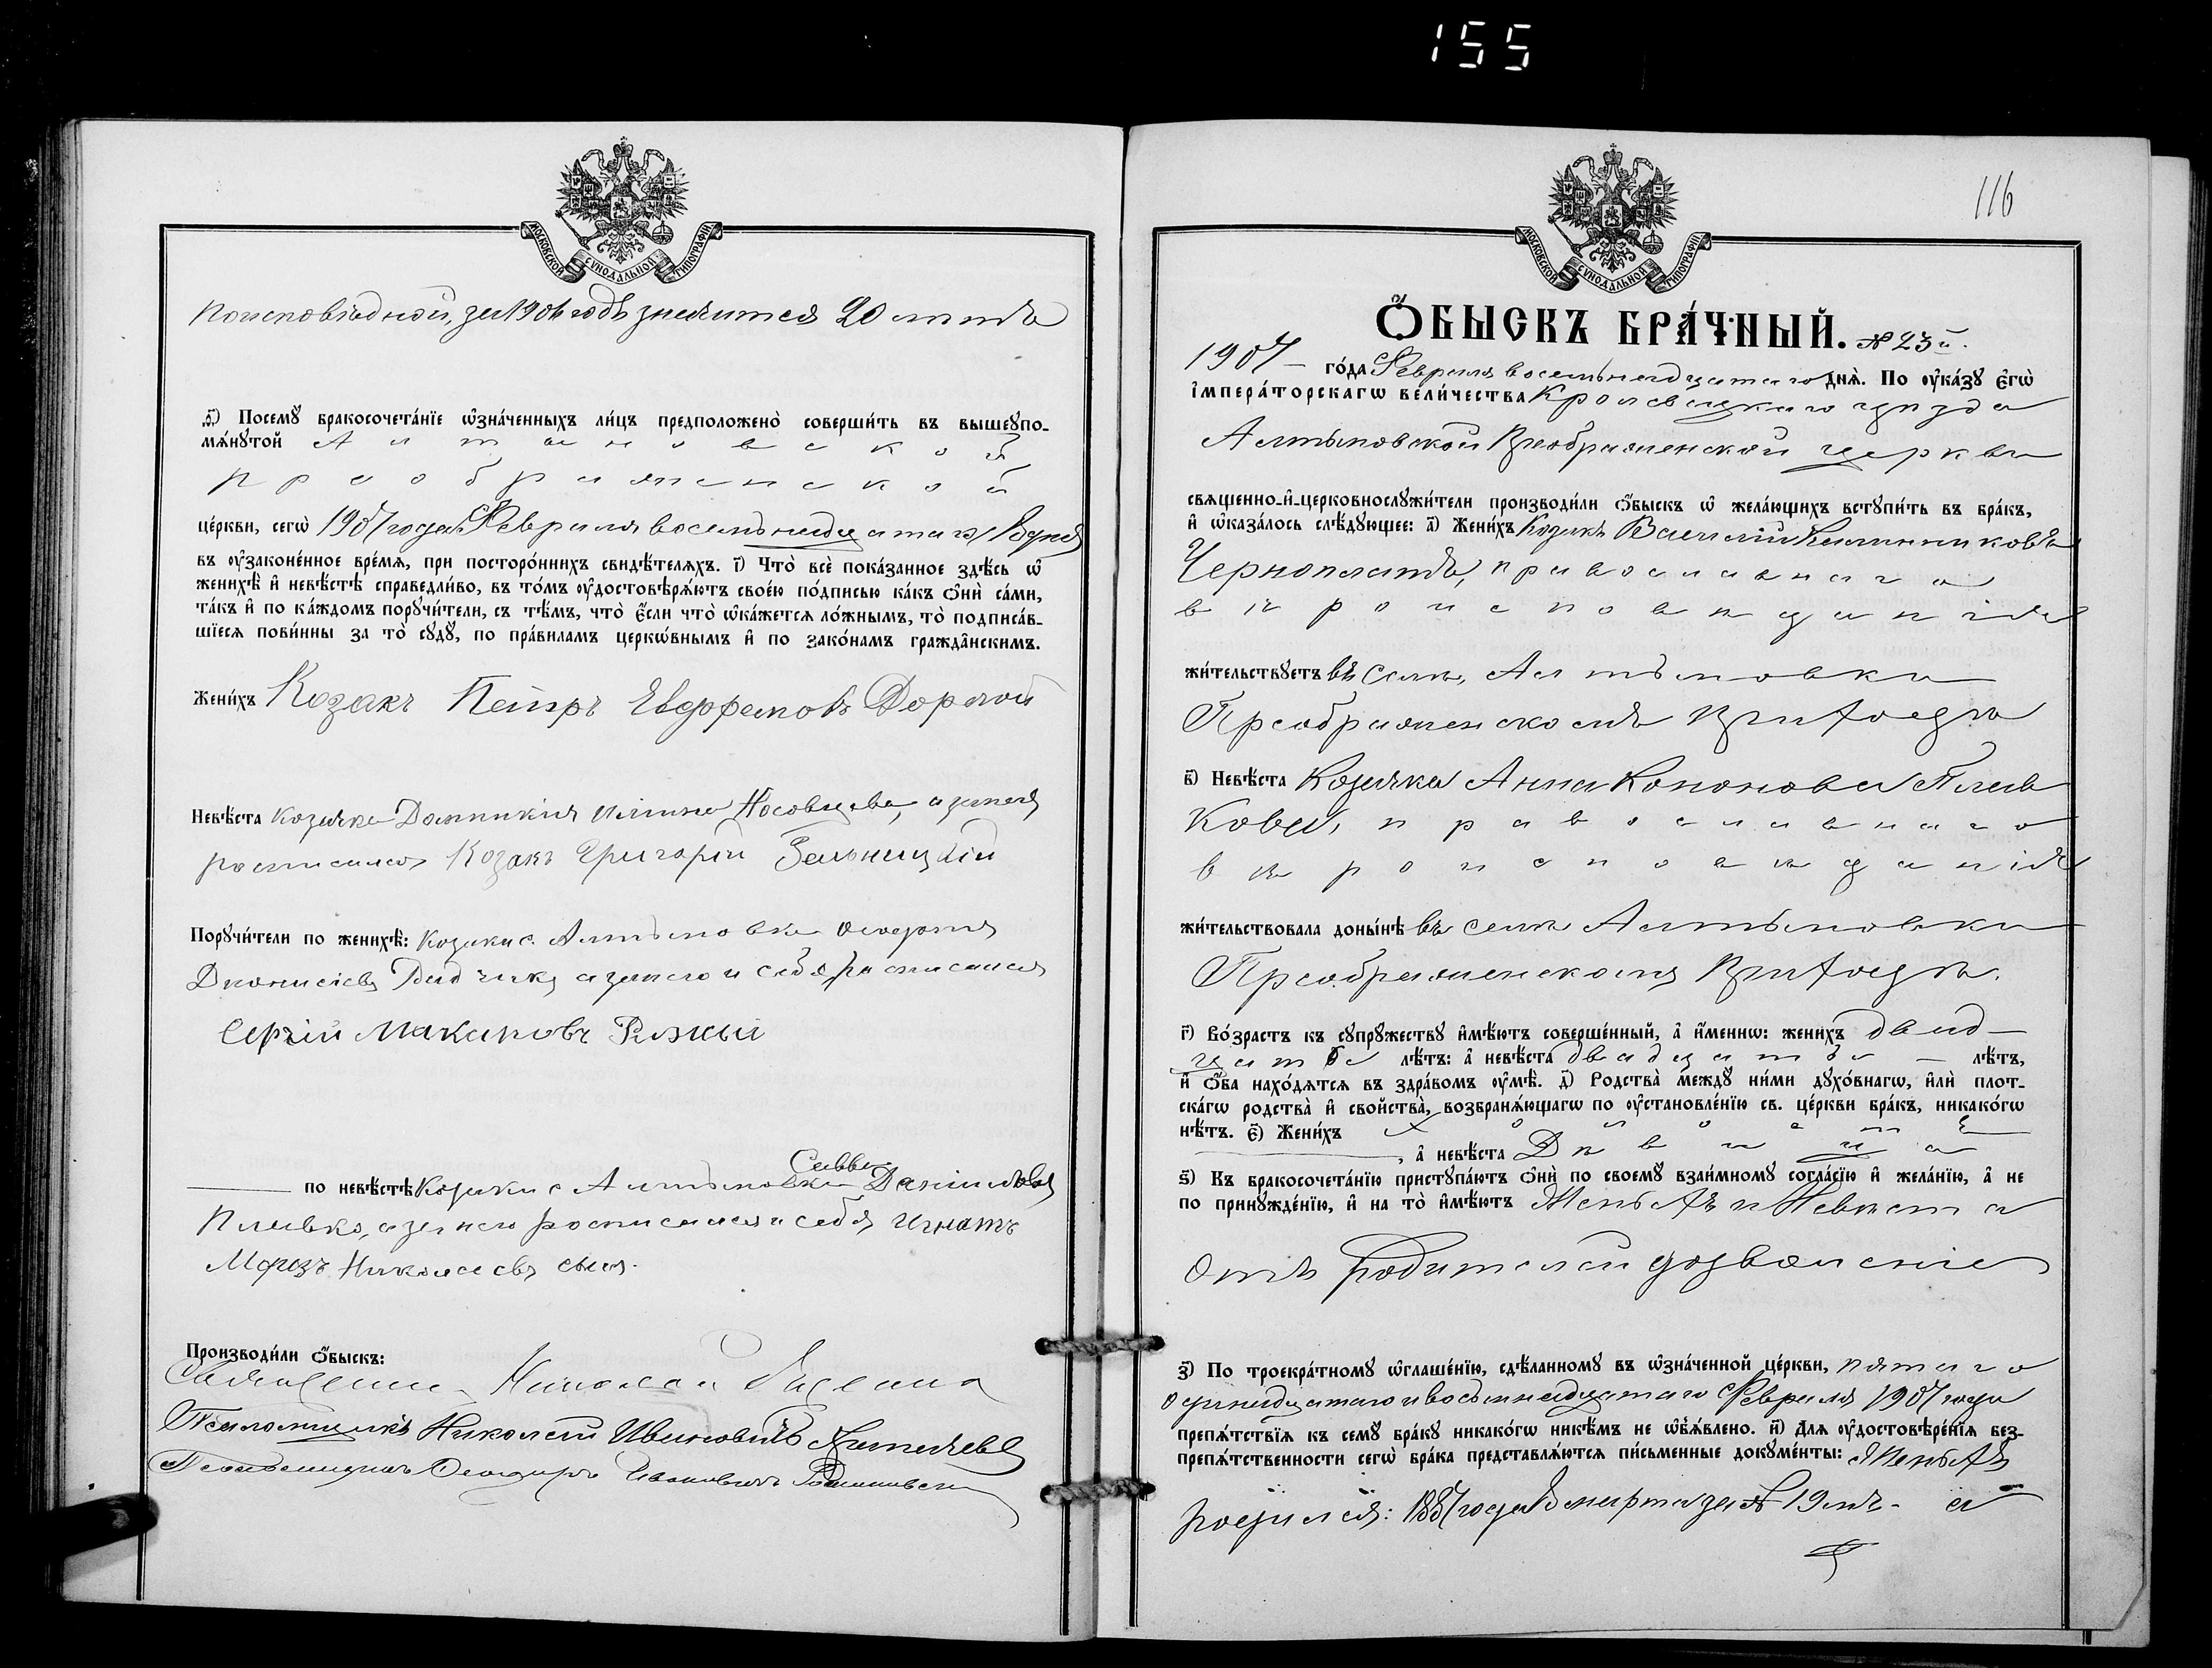 155
МОСКОВСКОЙ СУНОДАЛЬНОЙ ТИПОГРАФІИ
по исповѣдной, за 1906 годъ значится 20 лѣтъ
Посемꙋ̀ бракосочета́нїе ѡ҆зна́ченныхъ ли́цъ предположено̀ соверши́ть въ вышеꙋпо-
мѧ́нꙋтой Алтыновской
Преображенской
це́ркви, сегѡ̀ 1907 года Февраля восемьнадцатаго дня
въ ᲂу҆законе́нное вре́мѧ, при посторо́ннихъ свидѣ́телѧхъ. і҃) Что̀ всѐ пока́занное здѣ́сь ѡ҆
женихѣ̀ и҆ невѣ́стѣ справедли́во, въ то́мъ ᲂу҆достовѣрѧ́ютъ свое́ю по́дписью ка́къ ѻ҆нѝ са́ми,
та́къ и҆ по ка́ждомъ порꙋчи́тели, съ тѣ́мъ, что̀ є҆́сли что̀ ѡ҆ка́жетсѧ ло́жнымъ, то̀ подписа́в-
шїесѧ пови́нны за то̀ сꙋдꙋ̀, по пра́виламъ церкѡ́внымъ и҆ по зако́намъ гражда̂нскимъ.
Жени́хъ Козакъ Петръ Евфремовъ Дорогой
Невѣ́ста козачка Домникія Ильина Носовцева, а за нея
росписался Козакъ Григорій Зельницкій
Порꙋчи́тели по женихѣ̀: козаки с. Алтыновки Георгій
Діонисіевъ Дидчикъ, а за него и себя росписался
Сергій Макаровъ
по невѣ́стѣ Козаки с Алтыновки Савва Даніиловъ
Плавко, а за него росписался и себя Игнатъ
Морозъ Николаевъ сынъ.
Производи́ли ѻ҆́быскъ:
Священникъ Николай
Псаломщикъ Николай Ивановичъ
Псаломщикъ Ивановичъ
116
МОСКОВСКОЙ СУНОДАЛЬНОЙ ТИПОГРАФІИ
Ѻ҆́БЫСКЪ БРА́ЧНЫЙ. № 23й.
1907 – го́да Февраля восемьнадцатаго днѧ̀. По ᲂу҆ка́зꙋ є҆гѡ̀
і҆мпера́торскагѡ вели́чества Кролевецкаго уѣзда
Алтыновской Преображенской церкви
свѧщенно-и҆-церковнослꙋжи́тели производи́ли ѻ҆́быскъ ѡ҆ жела́ющихъ встꙋпи́ть въ бра́къ,
и҆ ѡ҆каза́лось слѣ́дꙋющее: а҃) Жени́хъ козакъ Василій Калинниковъ
Черноплатъ, православнаго
вѣроисповѣданія
жи́тельствꙋетъ въ селѣ, Алтыновки
Преображенскомъ приходѣ
в҃) Невѣ́ста Козачка Анна Кононова Плав
кова, православнаго
вѣроисповѣданія
жи́тельствовала доны́нѣ въ селѣ Алтыновки
Преображенскомъ приходѣ.
г҃) Во́зрастъ къ сꙋпрꙋ́жествꙋ и҆мѣ́ютъ соверше́нный, а҆ и҆́меннѡ: жени́хъ двад-
цать лѣ́тъ: а҆ невѣ́ста двадцать – лѣ́тъ,
и҆ ѻ҆́ба нахо́дѧтсѧ въ здра́вомъ ᲂу҆мѣ̀. д҃) Родства̀ междꙋ̀ ни́ми дꙋхо́внагѡ, и҆лѝ плот-
ска́гѡ родства̀ и҆ сво́йства̀, возбранѧ́ющагѡ по ᲂу҆становле́нїю св. це́ркви бра́къ, никако́гѡ
нѣ́тъ. є҃) Жени́хъ Холостъ
, а҆ невѣ́ста Дѣвица
ѕ҃) Къ бракосочета́нїю пристꙋпа́ютъ ѻ҆нѝ по своемꙋ̀ взаи́мномꙋ согла́сїю и҆ жела́нїю, а҆ не
по принꙋжде́нїю, и҆ на то̀ и҆мѣ́ютъ Женихъ и Невѣста
отъ родителей дозволеніе
з҃) По троекра́тномꙋ ѡ҆глаше́нїю, сдѣ́ланномꙋ въ ѡ҆зна́ченной це́ркви, пятаго
одинадцатаго и восемнадцатаго Февраля 1907 года
препѧ́тствїѧ къ семꙋ̀ бра́кꙋ никако́гѡ никѣ́мъ не ѡ҆б̾ѧ́влено. и҃) Длѧ̀ ᲂу҆достовѣре́нїѧ без-
препѧ́тственности сегѡ̀ бра́ка представлѧ́ютсѧ пи́сьменные докꙋме́нты: Женихъ
родился: 1887 года марта за № 19 мъ. а